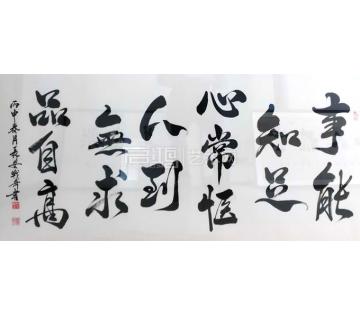 事能
知足
心常惬
人到
無求
品自高
丙申春月長安書